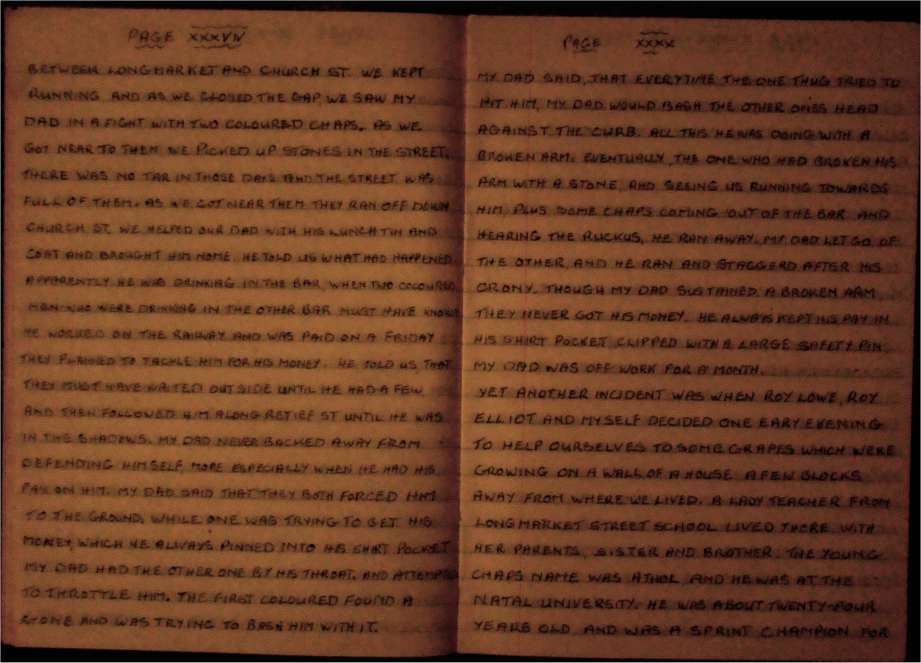 PAGE XXXVIV
BETWEEN LONGMARKET AND CHURCH ST. WE KEPT
RUNNING AND AS WE CLOSED THE GAP, WE SAW MY
DAD IN A FIGHT WITH TWO COLOURED CHAPS. AS WE
GOT NEAR TO THEM WE PICKED UP STONES IN THE STREET.
THERE WAS NO TAR IN THOSE DAYS AND THE STREET WAS
FULL OF THEM. AS WE GOT NEAR THEM THEY RAN OFF DOWN
CHURCH ST. WE HELPED OUR DAD WITH HIS LUNCH TIN AND
COAT AND BROUGHT HIM HOME. HE TOLD US WHAT HAD HAPPENED.
APPARENTLY HE WAS DRINKING IN THE BAR, WHEN TWO COLOURED
MEN WHO WERE DRINKING IN THE OTHER BAR MUST HAVE KNOWN
HE WORKED ON THE RAILWAY AND WAS PAID ON A FRIDAY
THEY PLANNED TO TACKLE HIM FOR HIS MONEY. HE TOLD US THAT
THEY MUST HAVE WAITED OUTSIDE UNTIL HE HAD A FEW
AND THEN FOLLOWED HIM ALONG RETIEF ST UNTIL HE WAS
IN THE SHADOWS. MY DAD NEVER BACKED AWAY FROM
DEFENDING HIMSELF, MORE ESPECIALLY WHEN HE HAD HIS
PAY ON HIM. MY DAD SAID THAT THEY BOTH FORCED HIM
TO THE GROUND, WHILE ONE WAS TRYING TO GET HIS
MONEY, WHICH HE ALWAYS PINNED INTO HIS SHIRT POCKET
MY DAD HAD THE OTHER ONE BY HIS THROAT, AND ATTEMPTED
TO THROTTLE HIM. THE FIRST COLOURED FOUND A
STONE AND WAS TRYING TO BASH HIM WITH IT.
PAGE XXXX
MY DAD SAID, THAT EVERYTIME THE ONE THUG TRIED TO
HIT HIM, MY DAD WOULD BASH THE OTHER ONES HEAD
AGAINST THE CURB. ALL THIS HE WAS DOING WITH A
BROKEN ARM. EVENTUALLY, THE ONE WHO HAD BROKEN HIS
ARM WITH A STONE, AND SEEING US RUNNING TOWARDS
HIM, PLUS SOME CHAPS COMING OUT OF THE BAR AND
HEARING THE RUCKUS, HE RAN AWAY. MY DAD LET GO, OF
THE OTHER, AND HE RAN AND STAGGERD AFTER HIS
CRONY. THOUGH MY DAD SUSTAINED A BROKEN ARM,
THEY NEVER GOT HIS MONEY. HE ALWAYS KEPT HIS PAY IN
HIS SHIRT POCKET, CLIPPED WITH A LARGE SAFETY PIN.
MY DAD WAS OFF WORK FOR A MONTH.
YET ANOTHER INCIDENT WAS WHEN ROY LOWE, ROY
ELLIOT AND MYSELF DECIDED ONE EARY EVENING
TO HELP OURSELVES TO SOME GRAPES WHICH WERE
GROWING ON A WALL OF A HOUSE A FEW BLOCKS
AWAY FROM WHERE WE LIVED. A LADY TEACHER FROM
LONGMARKET STREET SCHOOL LIVED THERE WITH
HER PARENTS, SISTER AND BROTHER. THE YOUNG
CHAPS NAME WAS ATHOL, AND HE WAS AT THE
NATAL UNIVERSITY. HE WAS ABOUT TWENTY-FOUR
YEARS OLD AND WAS A SPRINT CHAMPION FOR